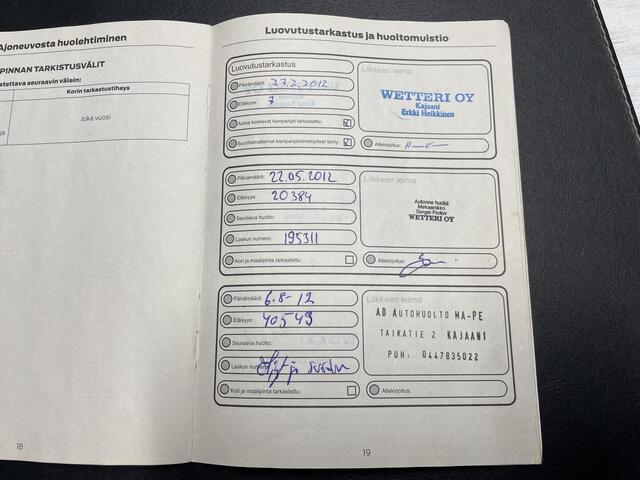 Ajoneuvosta huolehtiminen
PINNAN TARKISTUSVÄLIT
stettava seuraavin välein:
Korin tarkastustiheys
Joka vuosi
ja
18
Luovutustarkastus ja huoltomuistio
Luovutustarkastus
Päivämäärä: 27.2.2012
Etäisyys: 7
Autoa koskevat kampanjat tarkastettu:
Suorittamattomat kampanjatoimenpiteet tehty:
Liikkeen leima
WETTERI OY
Kajaani
Erkki Heikkinen
Allekirjoitus:
Päivämäärä: 22.05.2012
Etäisyys: 20384
Seuraava huolto:
Laskun numero: 195311
Kori ja maalipinta tarkastettu:
Liikkeen leima
Autonne huolsi
Mekaanikko
Sergei Frolov
WETTERI OY
Allekirjoitus:
Päivämäärä: 6.8-12
Etäisyys: 40549
Seuraava huolto:
Laskun numero:
Kori ja maalipinta tarkastettu:
Liikkeen leima
AD AUTOHUOLTO MA-PE
TAIKATIE 2 KAJAANI
PUH: 0447835022
Allekirjoitus:
19